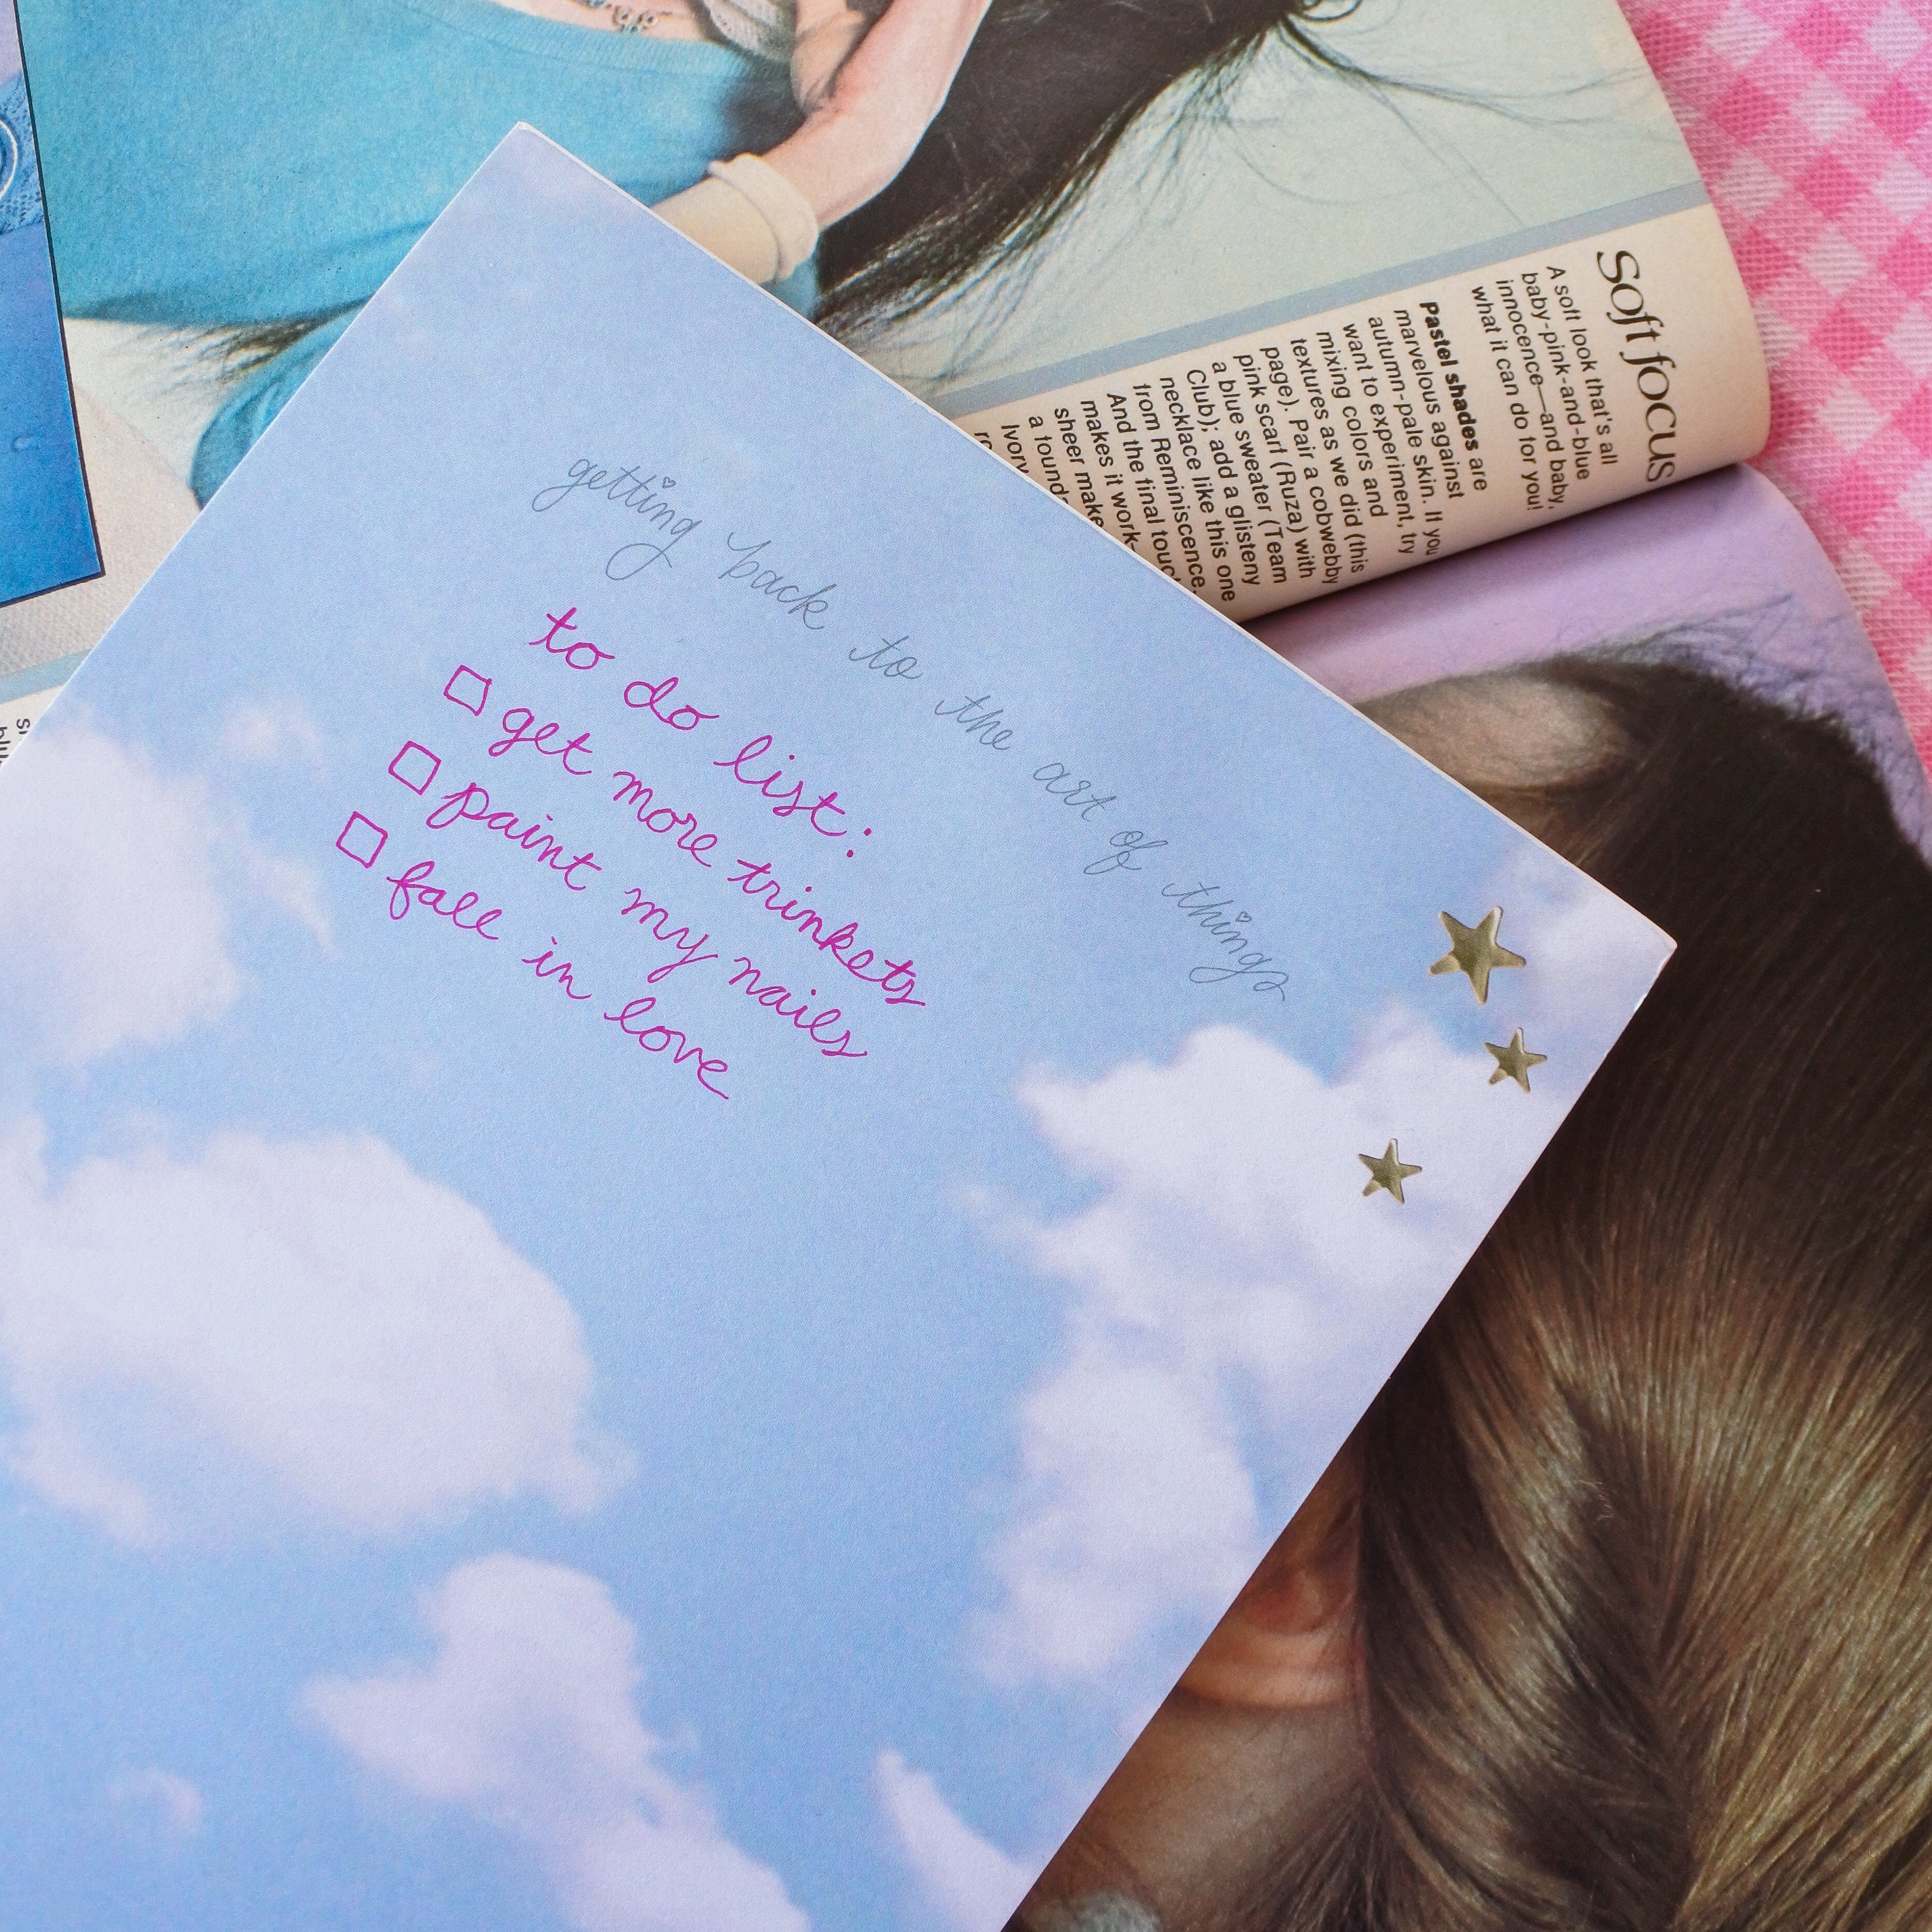 getting back to the art of things
to do list:
get more trinkets
paint my nails
fall in love
Soft focus
A soft look that's all
baby-pink-and-blue
innocence—and baby,
what it can do for you!
Pastel shades are
marvelous against
autumn-pale skin. If you
want to experiment, try
mixing colors and
textures as we did (this
page). Pair a cobwebby
pink scarf (Ruza) with
a blue sweater (Team
Club); add a glisteny
necklace like this one
from Reminiscence.
And the final touch
makes it work-
sheer make
a found
Ivory